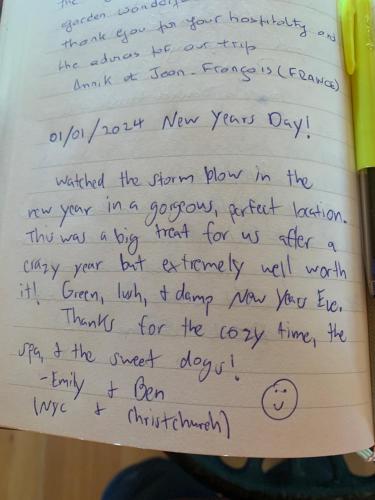 the
garden wonderf
thank you for your hospitality and
the advices for our trip
Annik et Jean-François (FRANCE)
01/01/2024 New Years Day!
Watched the storm blow in the
new year in a gorgeous, perfect location.
This was a big treat for us after a
crazy year but extremely well worth
it! Green, lush, + damp New Years Eve.
Thanks for the cozy time, the
spa, + the sweet dogs!
-Emily + Ben
(NYC + Christchurch)